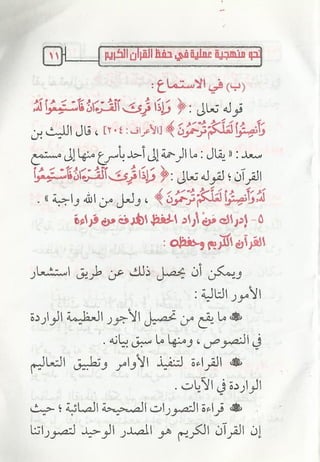 نحو منهجية عملية في حفظ القرآن الكريم
١١
(ب) في الاستماع :
قوله تعالى : ﴿ وَإِذَا قُرِئَ الْقُرْءَانُ فَاسْتَمِعُوا لَهُ
وَأَنصِتُوا لَعَلَّكُمْ تُرْحَمُونَ ﴾ [الأعراف : ٢٠٤] ، قال الليث بن
سعد : « يقال : ما الرحمة إلى أحد بأسرع منها إلى مستمع
القرآن ؛ لقوله تعالى : ﴿ وَإِذَا قُرِئَ الْقُرْءَانُ فَاسْتَمِعُوا
لَهُ وَأَنصِتُوا لَعَلَّكُمْ تُرْحَمُونَ ﴾ ، ولعل من الله واجبة » .
٥ - إدراك من أراد الحفظ الهدف من قراءة
القرآن الكريم وحفظه :
ويمكن أن يحصل ذلك عن طريق استشعار
الأمور التالية :
ما يقع من تحصيل الأجور العظيمة الواردة
في النصوص ، ومنها ما سبق بيانه .
القراءة لتنفيذ الأوامر وتطبيق التعاليم
الواردة في الآيات .
قراءة التصورات الصحيحة الصائبة ؛ حيث
إن القرآن الكريم هو المصدر الوحيد لتصوراتنا